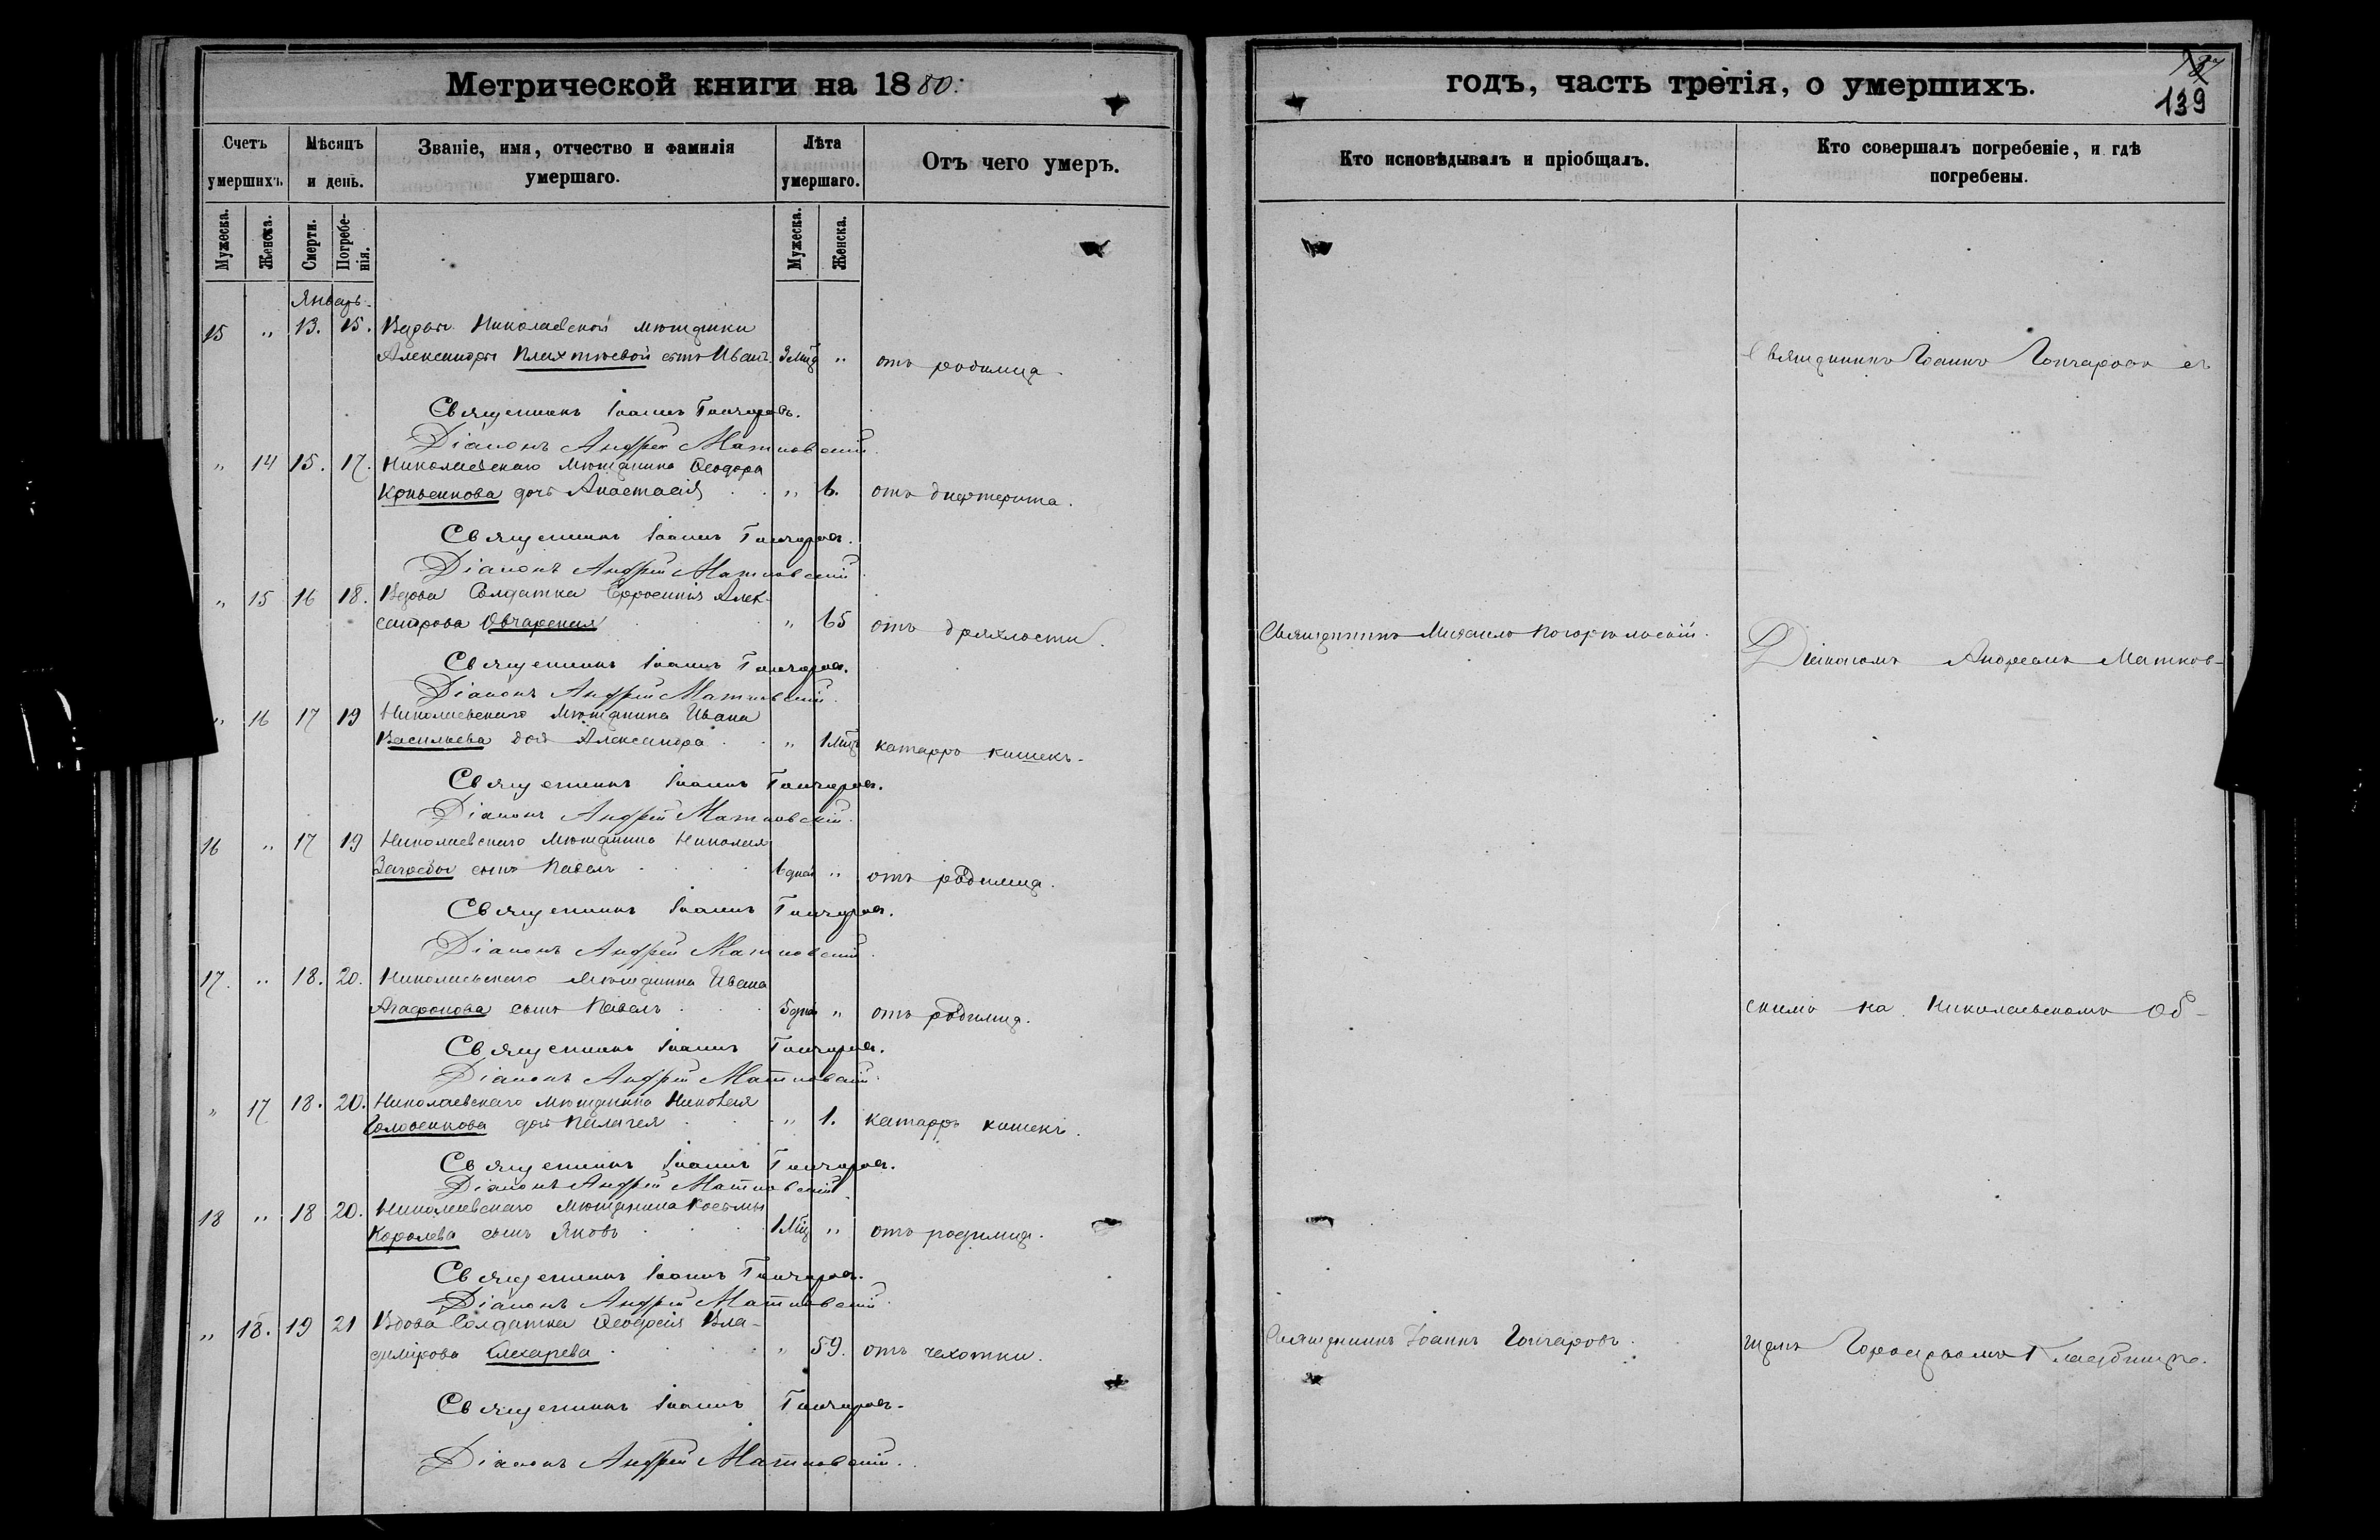 Метрической книги на 1880.
Счетъ умершихъ.
Мѣсяцъ и день.
Званіе, имя, отчество и фамилія умершаго.
Лѣта умершаго.
Отъ чего умеръ.
Мужеска.
Женска.
Смерти.
Погребе-
нія.
Мужеска.
Женска.
Январь.
15 " 13. 15. Вдовы Николаевской мѣщанки
Александры сынъ Иванъ. 3 мѣц " отъ родимца.
Священникъ Іоаннъ Гончаровъ.
Діаконъ Андрей Матковскій.
" 14 15. 17. Николаевскаго мѣщанина Ѳеодора
дочь Анастасія " отъ дифтерита.
Священникъ Іоаннъ Гончаровъ.
Діаконъ Андрей Матковскій.
" 15 16 18. Вдова Солдатка Ефросинія Алек-
сандрова Овчарская " 65 отъ дряхлости.
Священникъ Іоаннъ Гончаровъ.
Діаконъ Андрей Матковскій.
" 16 17 19 Николаевскаго мѣщанина Ивана
Васильева дочь Александра " 1 мѣц катарръ кишекъ.
Священникъ Іоаннъ Гончаровъ.
Діаконъ Андрей Матковскій.
16 " 17 19 Николаевскаго мѣщанина Николая
сынъ Павелъ " отъ родимца.
Священникъ Іоаннъ Гончаровъ.
Діаконъ Андрей Матковскій.
17. " 18. 20. Николаевскаго мѣщанина Ивана
Агафонова сынъ Павелъ 5 дней " отъ родимца.
Священникъ Іоаннъ Гончаровъ.
Діаконъ Андрей Матковскій.
" 17 18. 20. Николаевскаго мѣщанина Николая
дочь Пелагея " 1. катарръ кишекъ.
Священникъ Іоаннъ Гончаровъ.
Діаконъ Андрей Матковскій.
18 " 18 20. Николаевскаго мѣщанина Косьмы
Королева сынъ Яковъ 1 мѣц " отъ родимца.
Священникъ Іоаннъ Гончаровъ.
Діаконъ Андрей Матковскій.
" 18. 19 21 Вдова Солдатка Ѳеодосія Вла-
димірова " 59. отъ чахотки.
Священникъ Іоаннъ Гончаровъ.
Діаконъ Андрей Матковскій.
годъ, часть третія, о умершихъ.
139
Кто исповѣдывалъ и пріобщалъ.
Кто совершалъ погребеніе, и гдѣ
погребены.
Священникъ Іоаннъ Гончаровъ съ
Священникъ Михаилъ
Діакономъ Андреемъ Матков-
скимъ на Николаевскомъ Об-
Священникъ Іоаннъ Гончаровъ.
щемъ Городскомъ Кладбищѣ.